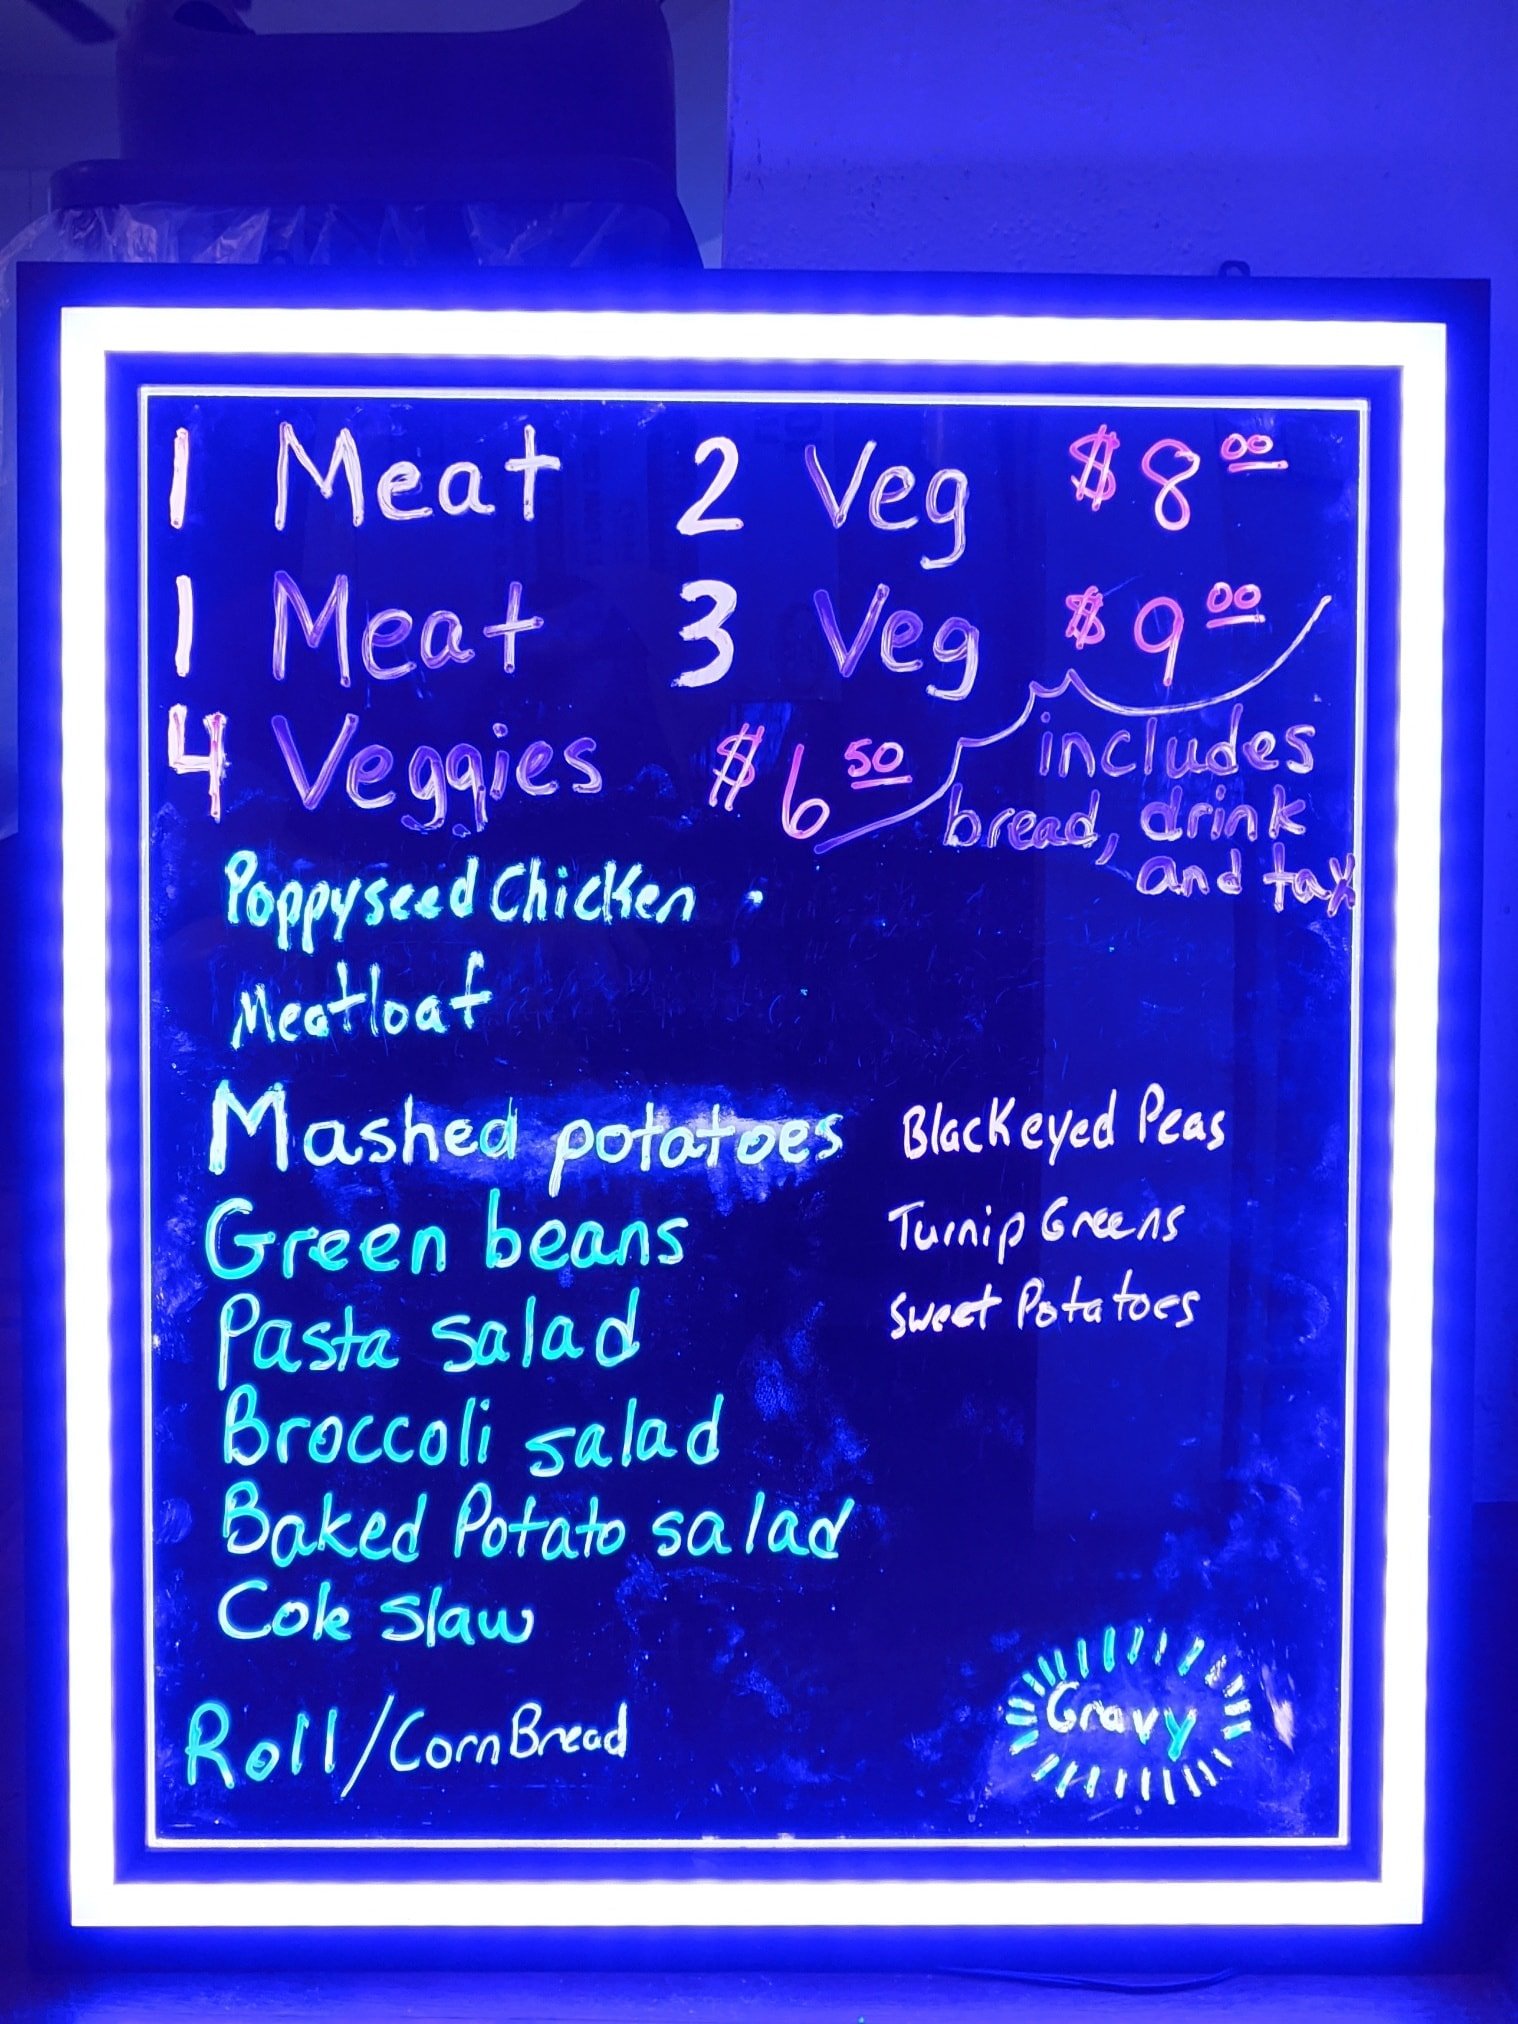 1 Meat 2 Veg $8.00
1 Meat 3 Veg $9.00
4 Veggies $6.50
includes
bread, drink
and tax
Poppyseed Chicken
Meatloaf
Mashed potatoes
Green beans
Pasta salad
Broccoli salad
Baked Potato salad
Cole Slaw
Blackeyed Peas
Turnip Greens
Sweet Potatoes
Roll/Corn Bread
Gravy